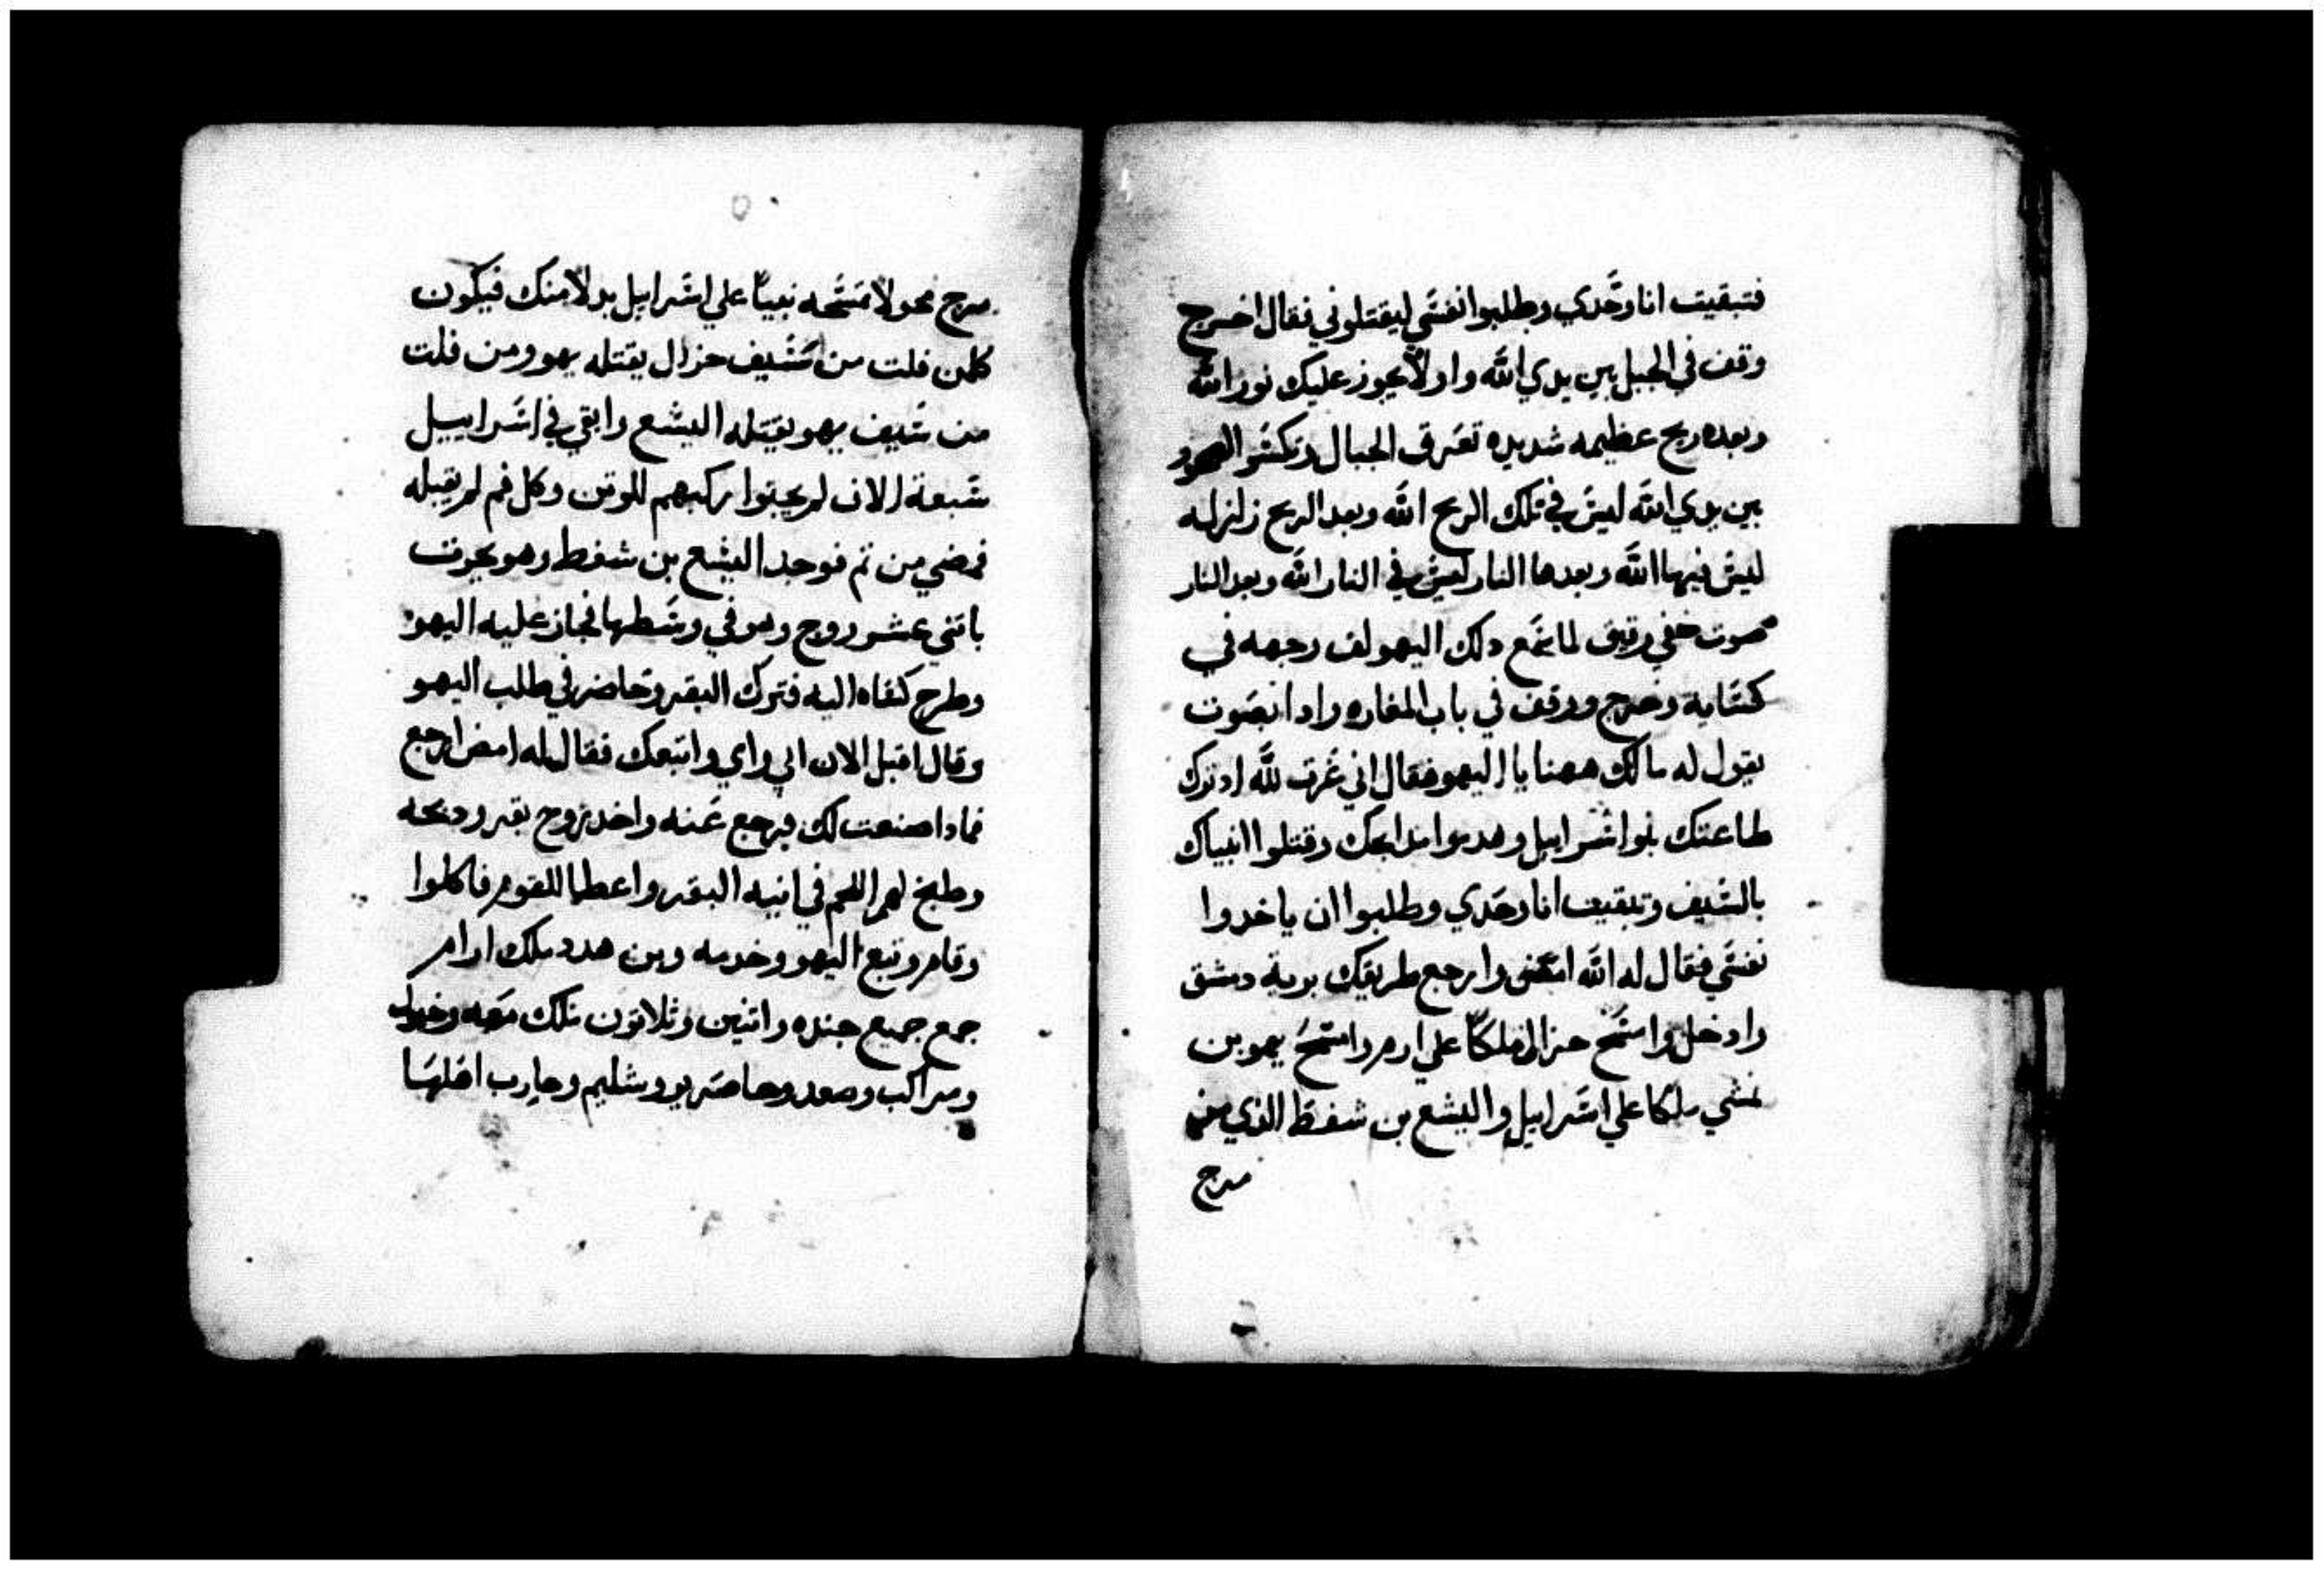 فتبقيت انا وحدي وطلبوا نفسي ليقتلوني فقال اخرج
وقف في الجبل بين يدي الله واد لا يجوز عليك نور الله
وبعده ريح عظيمه شديده تعرق الجبال وتكسر الصخور
بين يدي الله ليس في تلك الريح الله وبعد الريح زلزله
ليس فيها الله وبعدها النار ليس في النار الله وبعد النار
صوت خفي رقيق لما سمع دلك اليهو لف وجهه في
كسايه وخرج ووقف في باب المغاره وادا بصوت
يقول له ما لك ههنا يا اليهو فقال اني غرت لله اد ترك
طاعتك بنوا اسراييل وهدموا مدابحك وقتلوا انبياك
بالسيف وتبقيت انا وحدي وطلبوا ان ياخدوا
نفسي فقال له الله امضي وارجع طريقك برية دمشق
وادخل وامسح حزال ملكا علي ارم وامسح يهو بن
نمشي ملكا علي اسراييل واليشع بن شفط الذي من
مرج
مرج نحولا تمسحه نبيا علي اسراييل بدلا منك فيكون
كلمن فلت من سيف حزال يقتله يهو ومن فلت
من سيف يهو يقتله اليشع وابقي في اسراييل
سبعة الاف لم يجتوا ركبهم للوتن وكل فم لم يقبله
فمضي من تم فوجد اليشع بن شفط وهو يحرت
باتني عشر زوج وهو في وسطها فجاز عليه اليهو
وطرح كفاه اليه فترك البقر وحاضر في طلب اليهو
وقال اقبل الان ابي واي واتبعك فقال له امض ارجع
فمادا صنعت لك فرجع عنه واخد زوج بقر ودبحه
وطبخ لهم اللحم في انيه البقر واعطا للقوم فاكلوا
وقام وتبع اليهو وخدمه وبن هدد ملك ارام
جمع جميع جنده واتنين وثلاتون ملك معه وخيول
ومراكب وصعد وحاصر يروشليم وحارب اهلها